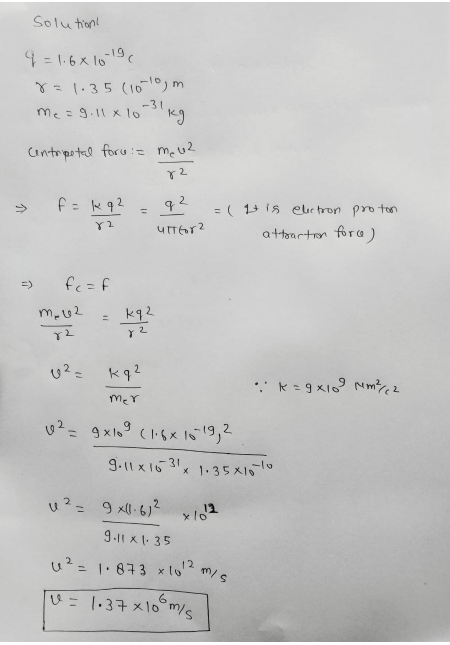 Solution:
q = 1.6 x 10^-19 c
r = 1.35 (10^-10) m
me = 9.11 x 10^-31 kg
Centripetal force := me v^2 / r^2
⇒ f = kq^2 / r^2 = q^2 / 4πϵ0r^2 = ( It is electron proton
attraction force)
⇒ fc = f
me v^2 / r^2 = kq^2 / r^2
v^2 = kq^2 / me r ∵ k = 9 x 10^9 Nm^2/c^2
v^2 = 9 x 10^9 (1.6 x 10^-19)^2 / 9.11 x 10^-31 x 1.35 x 10^-10
v^2 = 9 x (1.6)^2 / 9.11 x 1.35 x 10^12
v^2 = 1.873 x 10^12 m/s
v = 1.37 x 10^6 m/s